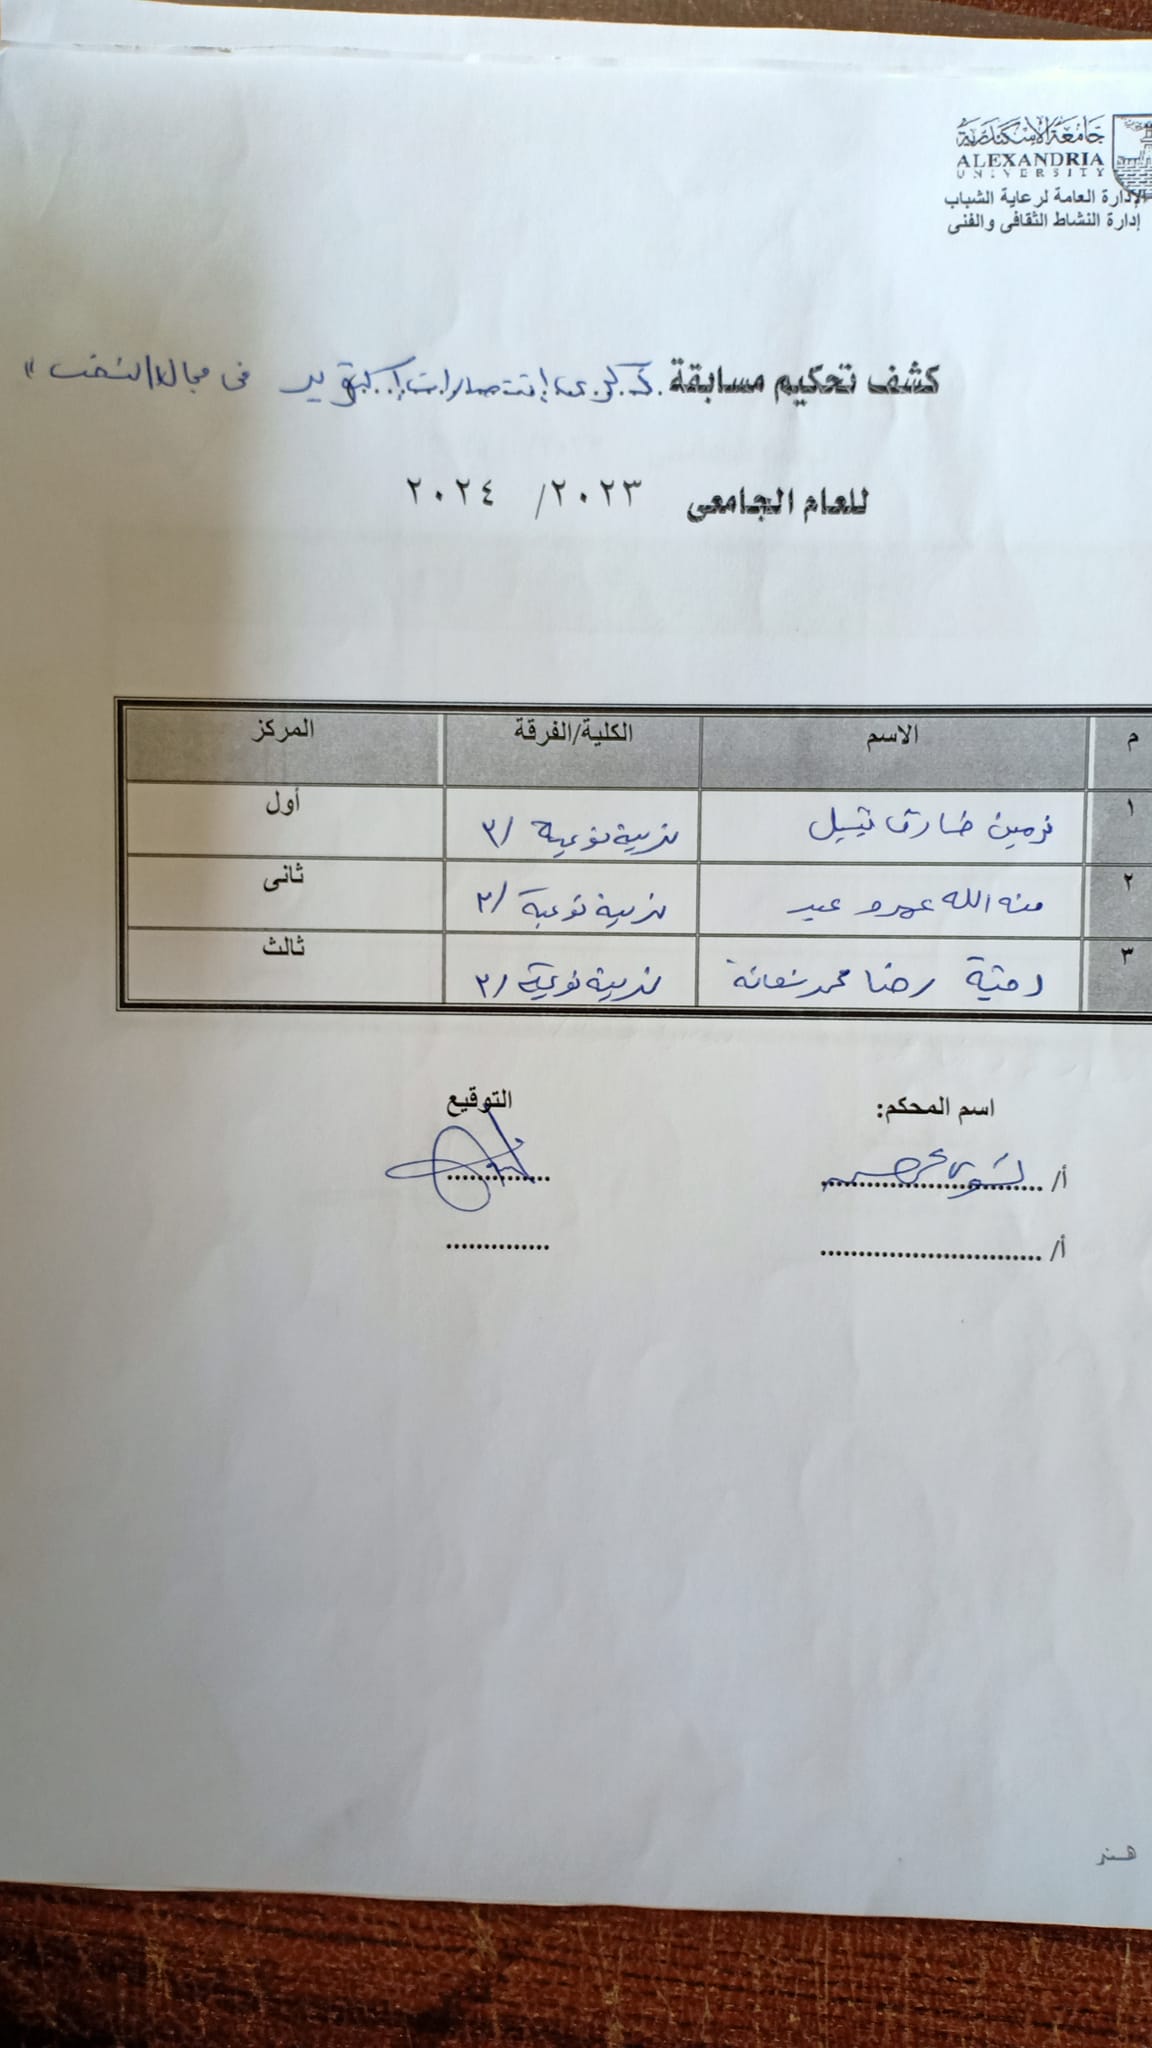 جامعة الإسكندرية
ALEXANDRIA
UNIVERSITY
الإدارة العامة لرعاية الشباب
إدارة النشاط الثقافى والفنى
كشف تحكيم مسابقة ذكرى إنتصارات أكتوبر فى مجال النحت "
للعام الجامعى ٢٠٢٣/ ٢٠٢٤
م الاسم الكلية/الفرقة المركز
١ نرمين طارق نبيل تربية نوعية /٣ أول
٢ منه الله عمرو عيد تربية نوعية /٢ ثانى
٣ رضا محمد تربية نوعية /٣ ثالث
اسم المحكم: التوقيع
أ/ نشوى ..............
أ/ ............................. ..............